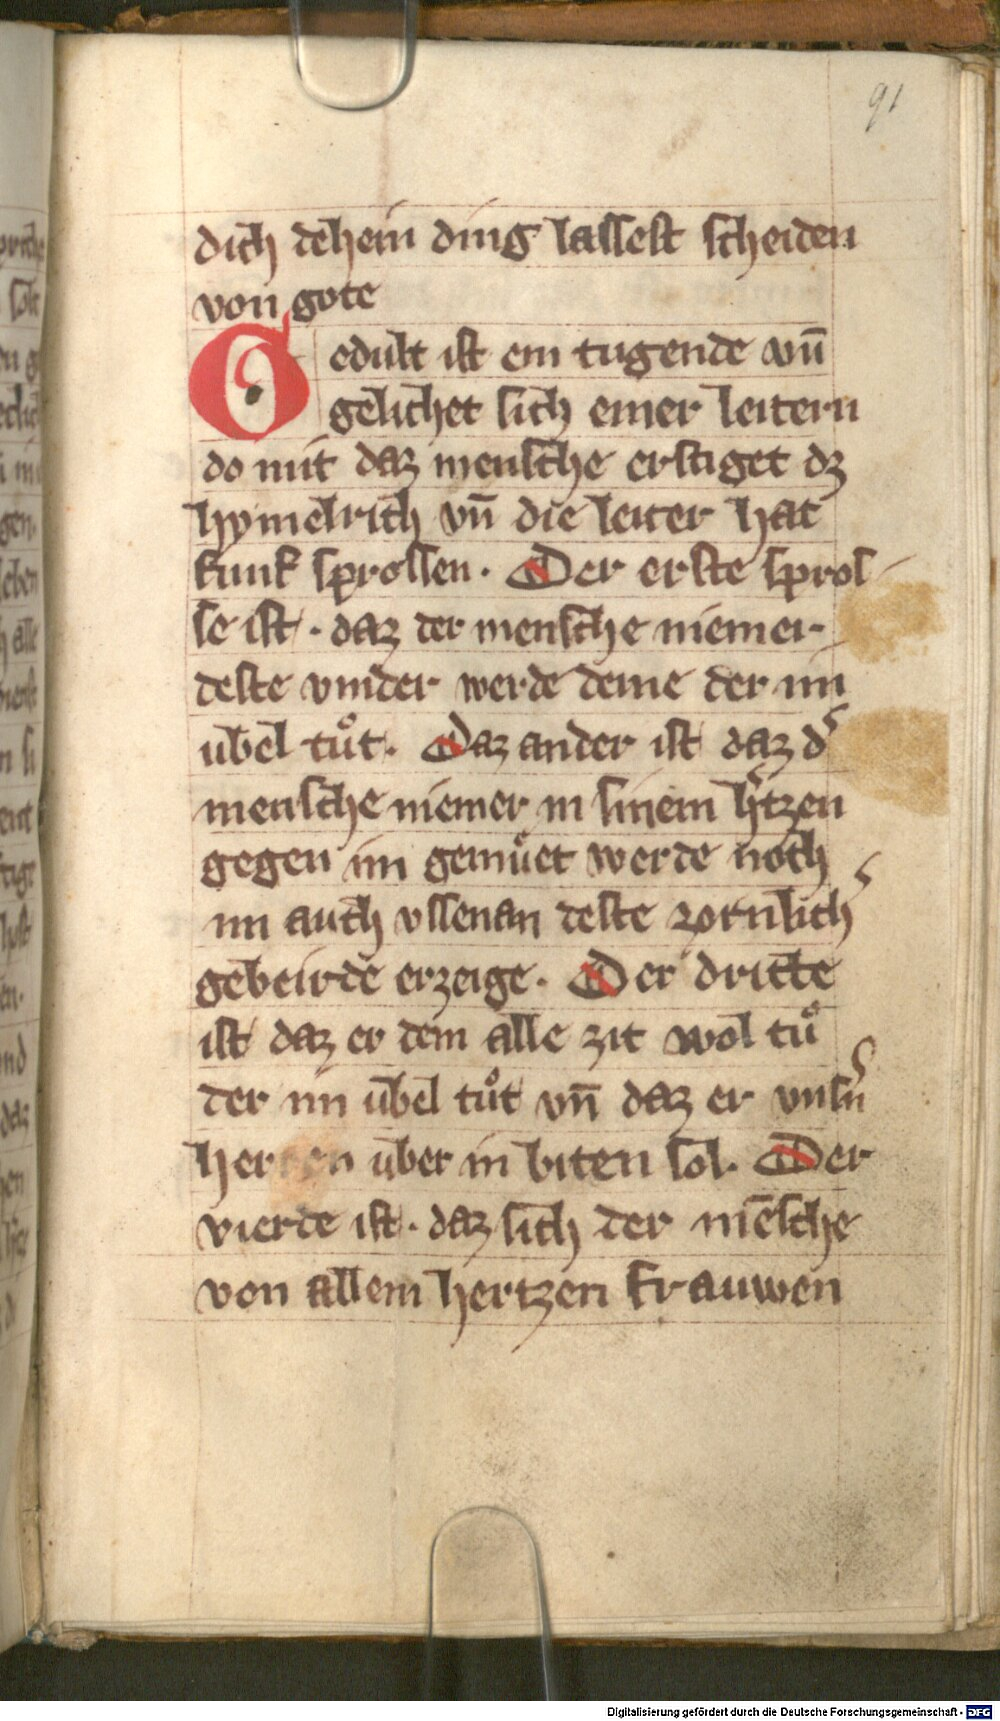 91
dich dehein ding lassest scheiden
von gote
Gedult ist ein tugende vnd̄
gelichet sich einer leitern
do mit daz mensche erstiget dz
hymelrich vn̄ die leiter hat
funf sprossen. Der erste spros
se ist. daz der mensche niemer
deste vinder werde deme der im
übel tuͦt. Daz ander ist daz d͛
mensche niemer in sinem h͛tzen
gegen im gemuͤet werde noch
im auch vssenan deste zornlich͛
gebeirde erzeige. Der dritte
ist daz er dem alle zit wol tuͦ
der im übel tuͦt vn̄ daz er vns͛n
herren über in biten sol. Der
vierde ist. daz sich der mēsche
von allem hertzen frauwen
Digitalisierung gefördert durch die Deutsche Forschungsgemeinschaft - DFG